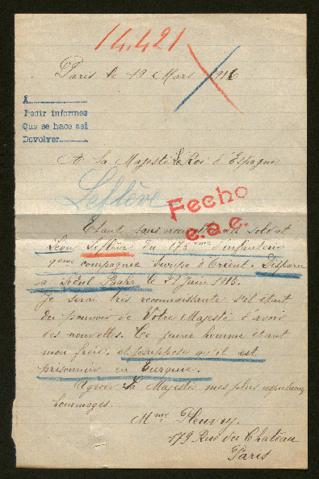 14.421
Paris le 19 Mars 1916
A
Pedir informes
Que se hace asi
Devolver
A Sa Majesté Le Roi d'Espagne
Lefèvre
Fecho
e.a.e.
Etant sans nouvelles du soldat
Léon Lefèvre du 175ème d'infanterie
compagnie Armée d'Orient. Disparu
à Sedul Bahr le 21 Juin 1915.
Je serai très reconnaissante s'il était
du pouvoir de Votre Majesté d'avoir
des nouvelles. Ce jeune homme étant
mon frère, et suppose qu'il est
prisonnier en Turquie.
Agréez Sa Majesté, mes plus
hommages.
Mme Fleury
179 Rue du Chateau
Paris